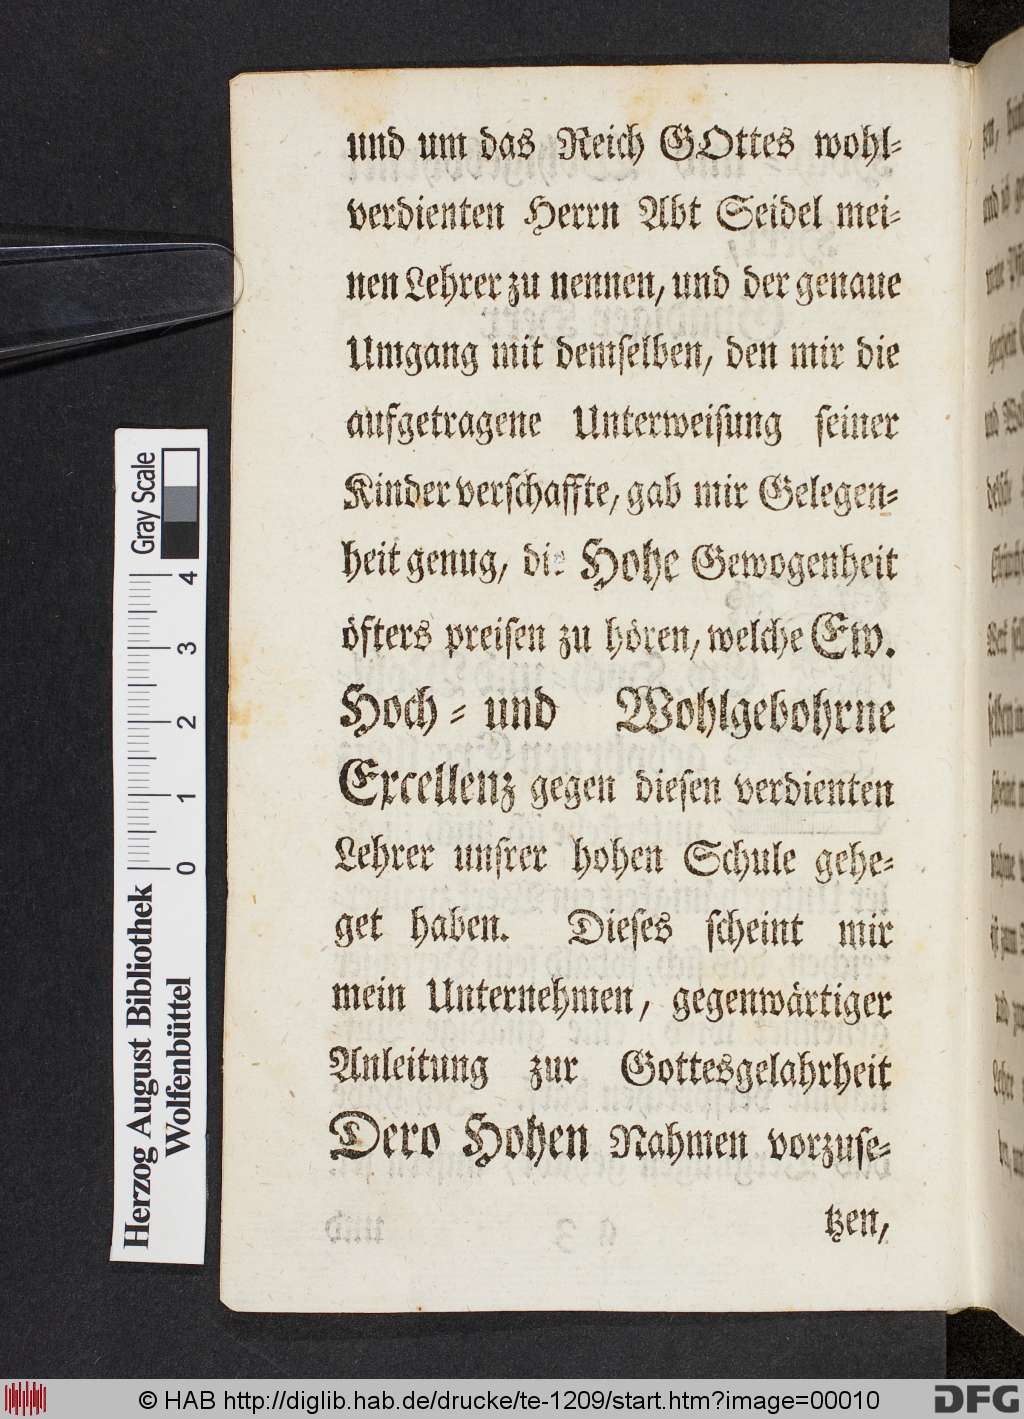 und um das Reich GOttes wohl-
verdienten Herrn Abt Seidel mei-
nen Lehrer zu nennen, und der genaue
Umgang mit demselben, den mir die
aufgetragene Unterweisung seiner
Kinder verschaffte, gab mir Gelegen-
heit genug, die Hohe Gewogenheit
öfters preisen zu hören, welche Ew.
Hoch- und Wohlgebohrne
Excellenz gegen diesen verdienten
Lehrer unsrer hohen Schule gehe-
get haben. Dieses scheint mir
mein Unternehmen, gegenwärtiger
Anleitung zur Gottesgelahrheit
Dero Hohen Nahmen vorzuse-
tzen,
Gray Scale
0 1 2 3 4
Herzog August Bibliothek
Wolfenbüttel
© HAB http://diglib.hab.de/drucke/te-1209/start.htm?image=00010
DFG